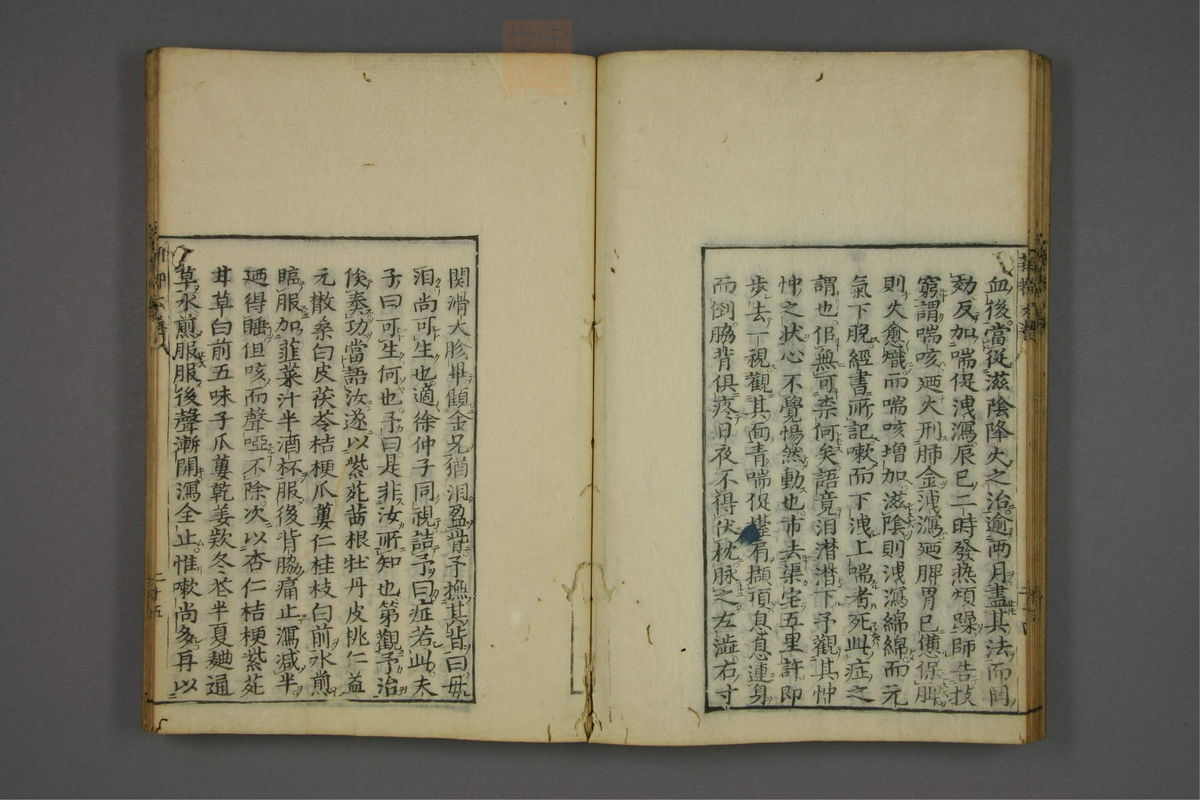 血後當從滋陰降火之治逾兩月盡其法而罔
効反加喘促洩瀉辰巳二時發熱煩躁師告技
窮謂喘咳廼火刑肺金洩瀉廼脾胃已憊保脾
則火愈熾而喘咳增加滋陰則洩瀉綿綿而元
氣下脫經書所記嗽而下洩上喘者死此症之
謂也但無可柰何矣語竟泪潸潸下予觀其忡
忡之狀心不覺惕然動也市去渠宅五里許即
步去一視觀其面青喘促擡肩擷項息息連身
而倒脇背俱疼日夜不得伏枕脉之左澁右寸
関滑大胗畢顧金兄猶泪盈眥予撫其背曰毋
泪尚可生也適徐仲子同視詰予曰症若此夫
子曰可生何也予曰是非汝所知也第觀予治
俟奏功當語汝遂以紫菀茜根牡丹皮桃仁益
元散桑白皮茯苓桔梗瓜蔞仁桂枝白前水煎
臨服加韮菜汁半酒杯服後背脇痛止瀉減半
廼得睡但咳而聲啞不除次以杏仁桔梗紫菀
甘草白前五味子瓜蔞乾姜欵冬花半夏麯通
草水煎服服後聲漸開瀉全止惟嗽尚多再以